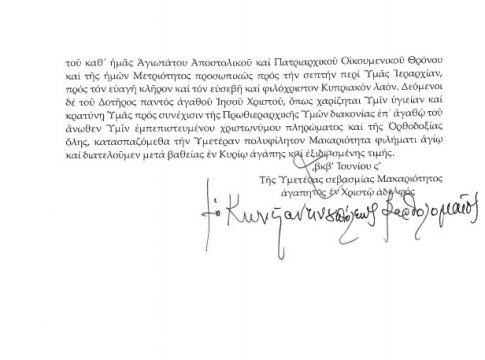 τοῦ καθ᾽ ἡμᾶς Ἁγιωτάτου Ἀποστολικοῦ καί Πατριαρχικοῦ Οἰκουμενικοῦ Θρόνου
καί τῆς ἡμῶν Μετριότητος προσωπικῶς πρός τήν σεπτήν περί Ὑμᾶς Ἱεραρχίαν,
πρός τόν εὐαγῆ κλῆρον καί τόν εὐσεβῆ καί φιλόχριστον Κυπριακόν λαόν. Δεόμενοι
δέ τοῦ Δοτῆρος παντός ἀγαθοῦ Ἰησοῦ Χριστοῦ, ὅπως χαρίζηται Ὑμῖν ὑγιείαν καί
κρατύνῃ Ὑμᾶς πρός συνέχισιν τῆς Πρωθιεραρχικῆς Ὑμῶν διακονίας ἐπ᾽ ἀγαθῷ τοῦ
ἄνωθεν Ὑμῖν ἐμπεπιστευμένου χριστωνύμου πληρώματος καί τῆς Ὀρθοδοξίας
ὅλης, κατασπαζόμεθα τήν Ὑμετέραν πολυφίλητον Μακαριότητα φιλήματι ἁγίῳ
καί διατελοῦμεν μετά βαθείας ἐν Κυρίῳ ἀγάπης καί ἐξιδιασμένης τιμῆς.
͵βκβ᾽ Ἰουνίου ς᾽
Τῆς Ὑμετέρας σεβασμίας Μακαριότητος
ἀγαπητός ἐν Χριστῷ ἀδελφός
Κωνσταντινουπόλεως Βαρθολομαῖος